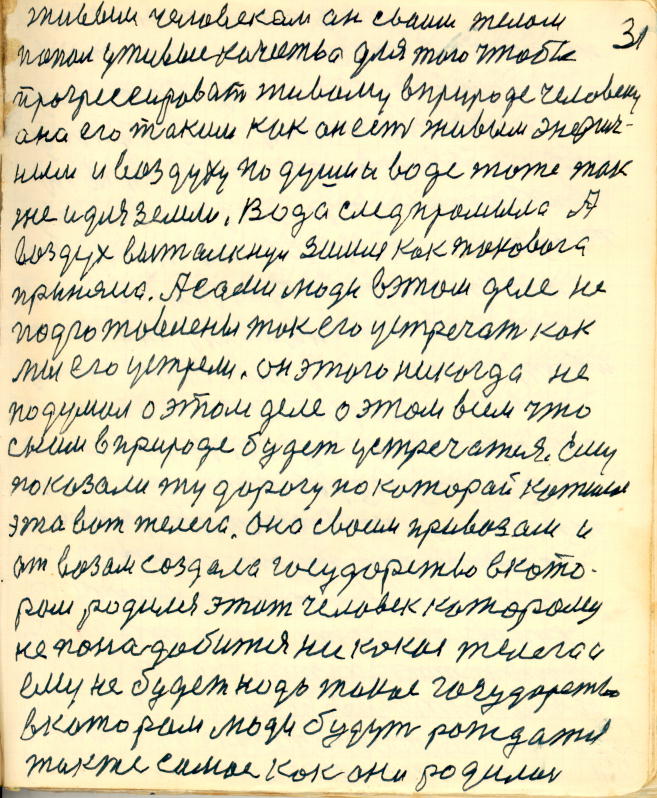 31
живым человекам он своим телом
попал у живые качества для того чтобы
прогрессироват живому в природе человеку
она его таким как он ест живым энергич-
ным и воздуху по душы и воде тоже так
же и для земли. Вода след промыла А
воздух выталкнул Земля как таковога
приняла. А сами люди в этом деле не
подготовлены так его устречат как
мы его устрели. он этого никогда не
подумал о этом деле о этом всем что
с ним в природе будет устречатся. Ему
показали ту дорогу по которай катилас
эта вот телега. Она своим привозам и
от возам создала государство в кото-
ром родился этот человек которому
не пона-добится ни какая телега и
ему не будет надь такое государство
в котором люди будут рождатся
также самое как они родилис